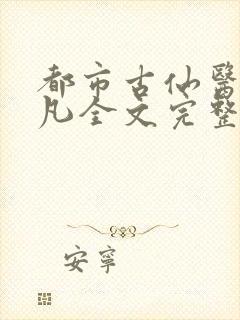 都市古仙醫
凡全文完整
安寧